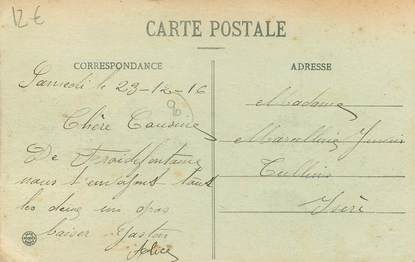 12€
CARTE POSTALE
CORRESPONDANCE
ADRESSE
Samedi le 23-12-16
Chère Cousine
De Froidefontaine
nous t'envoyons tous
les deux un gros
baiser Gaston
Madame
Marcelline
Tullins
Isère